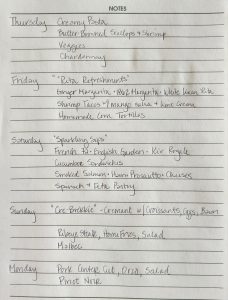 NOTES
Thursday Creamy Pasta
Butter Scallops & Shrimp
Veggies
Chardonnay
Friday "Rita Refreshments"
Ginger Margarita · Margarita · White Rita
Shrimp Tacos w/ mango salsa & Lime Crema
Homemade Corn Tortillas
Saturday "Sparkling Sips"
French 75 · English Garden · Kir Royale
Cucumber Sandwiches
Smoked Salmon · Prosciutto · Cheeses
Spinach & Feta Pastry
Sunday - Cremant w/ Croissants, Eggs, Bacon
Ribeye Steak, Home Fries, Salad
Malbec
Monday Pork Center Cut, Orzo, Salad
Pinot Noir